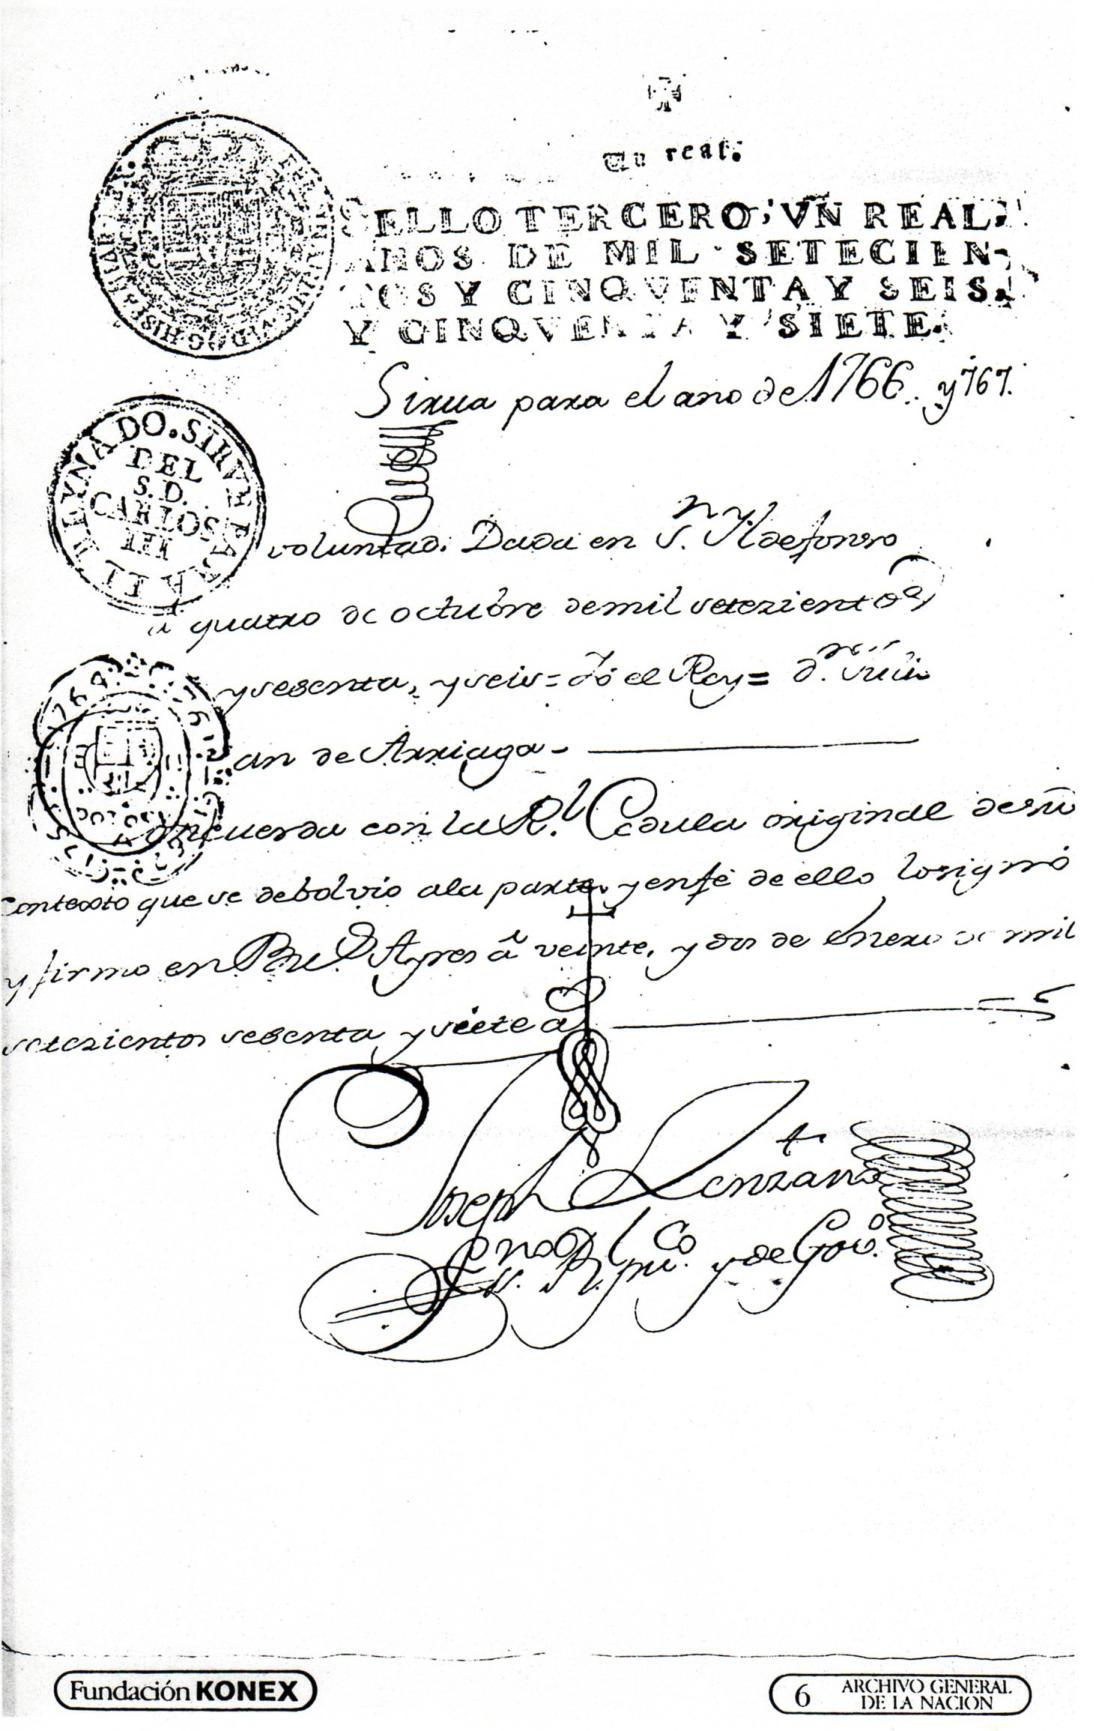 Un real.
SELLO TERCERO, VN REAL,
AÑOS DE MIL SETECIEN-
TOS Y CINQVENTA Y SEIS,
Y CINQVENTA Y SIETE.
Sirua para el ano de 1766. y 767.
REYNADO. SIRVE PARA EL
DEL
S. D.
CARLOS
III
voluntad. Dada en S.n Yldefonso
a quatro de octubre de mil setezientos
y sesenta, y seis = Yo el Rey = d.n Juli
an de Arriaga -
Concuerda con la R.l Cedula original de su
contexto que se debolvio a la parte, y en fe de ello lo signo
y firmo en Bu.s Ayres a veinte, y dos de Enero de mil
setezientos sesenta y siete a.s
Joseph Zenzano
Ess.no R.l pu.co y de Gov.o
Fundación KONEX
6 ARCHIVO GENERAL
DE LA NACION